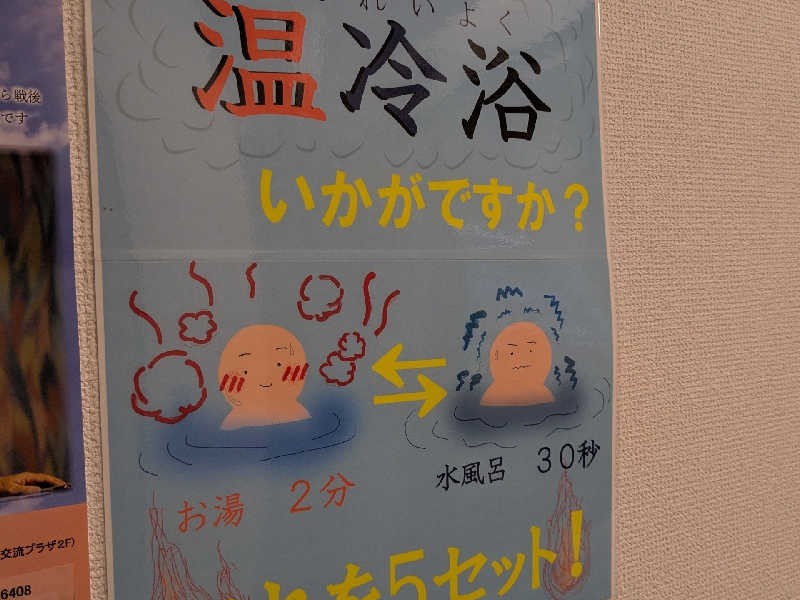 れいよく
温冷浴
いかがですか?
お湯 2分
水風呂 30秒
を5セット!
ら戦後
です
交流プラザ2F)
6408